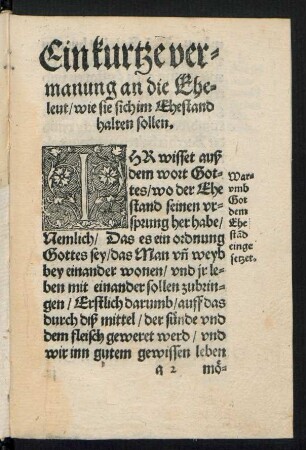 Ein kurtze ver-
manung an die Ehe-
leut/ wie sie sich im Ehestand
halten sollen.
IHR wisset auß
dem wort Got-
tes/ wo der Ehe
stand seinen vr-
sprung her habe/
Nemlich/ Das es ein ordnung
Gottes sey/ das Man vñ weyb
bey einander wonen/ vnd jr le-
ben mit einander sollen zubrin-
gen/ Erstlich darumb/ auff das
durch diß mittel/ der sünde vnd
dem fleisch geweret werd/ vnd
wir inn gutem gewissen leben
a 2 mö-
War-
vmb
Got
dem
Ehe
stãd
einge
setzet.